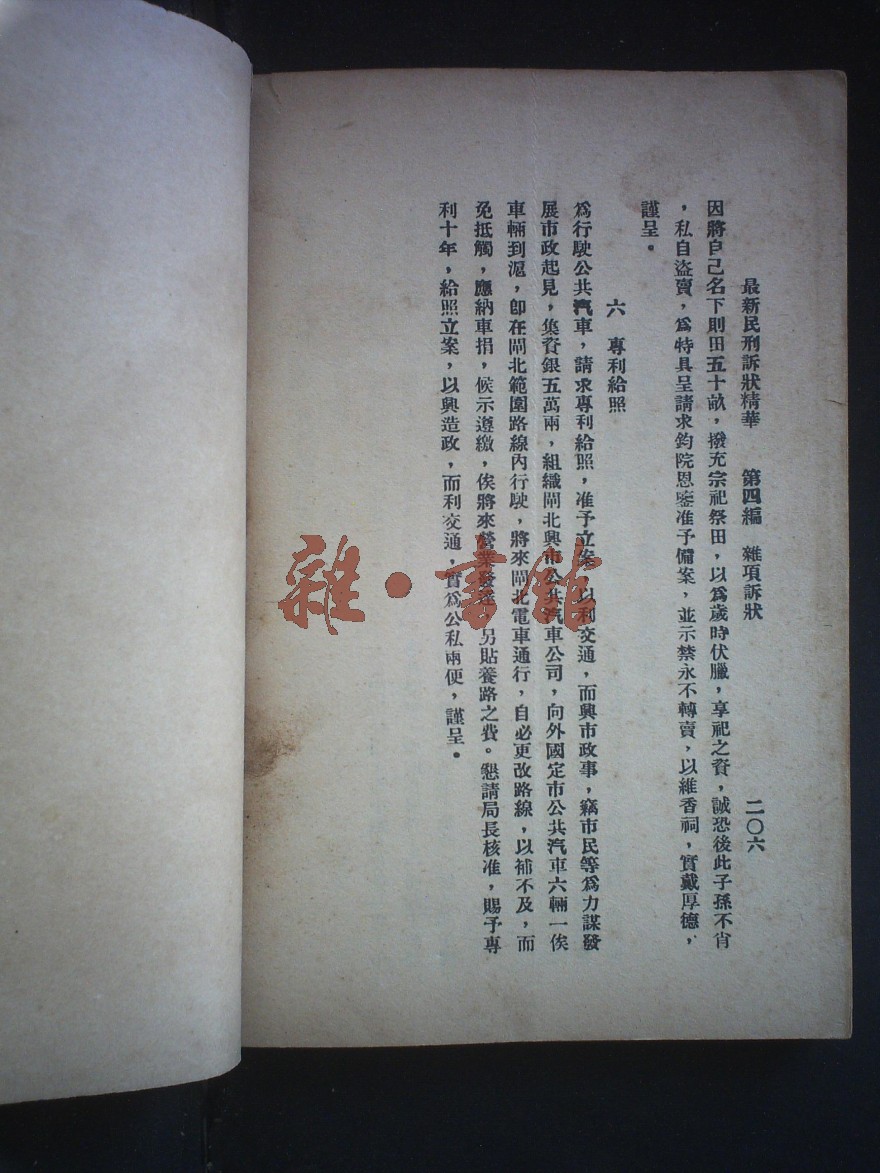 最新民刑訴狀精華　第四編　雜項訴狀　二〇六
因將自己名下則田五十畝，撥充宗祀祭田，以爲歲時伏臘，享祀之資，誠恐後此子孫不肖
，私自盜賣，爲特具呈請求鈞院恩鑒准予備案，並示禁永不轉賣，以維香祠，實戴厚德，
謹呈。
六　專利給照
爲行駛公共汽車，請求專利給照，准予立案，以利交通，而興市政事，竊市民等爲力謀發
展市政起見，集資銀五萬兩，組織閘北興市公共汽車公司，向外國定市公共汽車六輛一俟
車輛到滬，卽在閘北範圍路線內行駛，將來閘北電車通行，自必更改路線，以補不及，而
免抵觸，應納車捐，候示遵繳，俟將來營業發達，另貼養路之費。懇請局長核准，賜予專
利十年，給照立案，以興造政，而利交通，實爲公私兩便，謹呈。
雜·書館